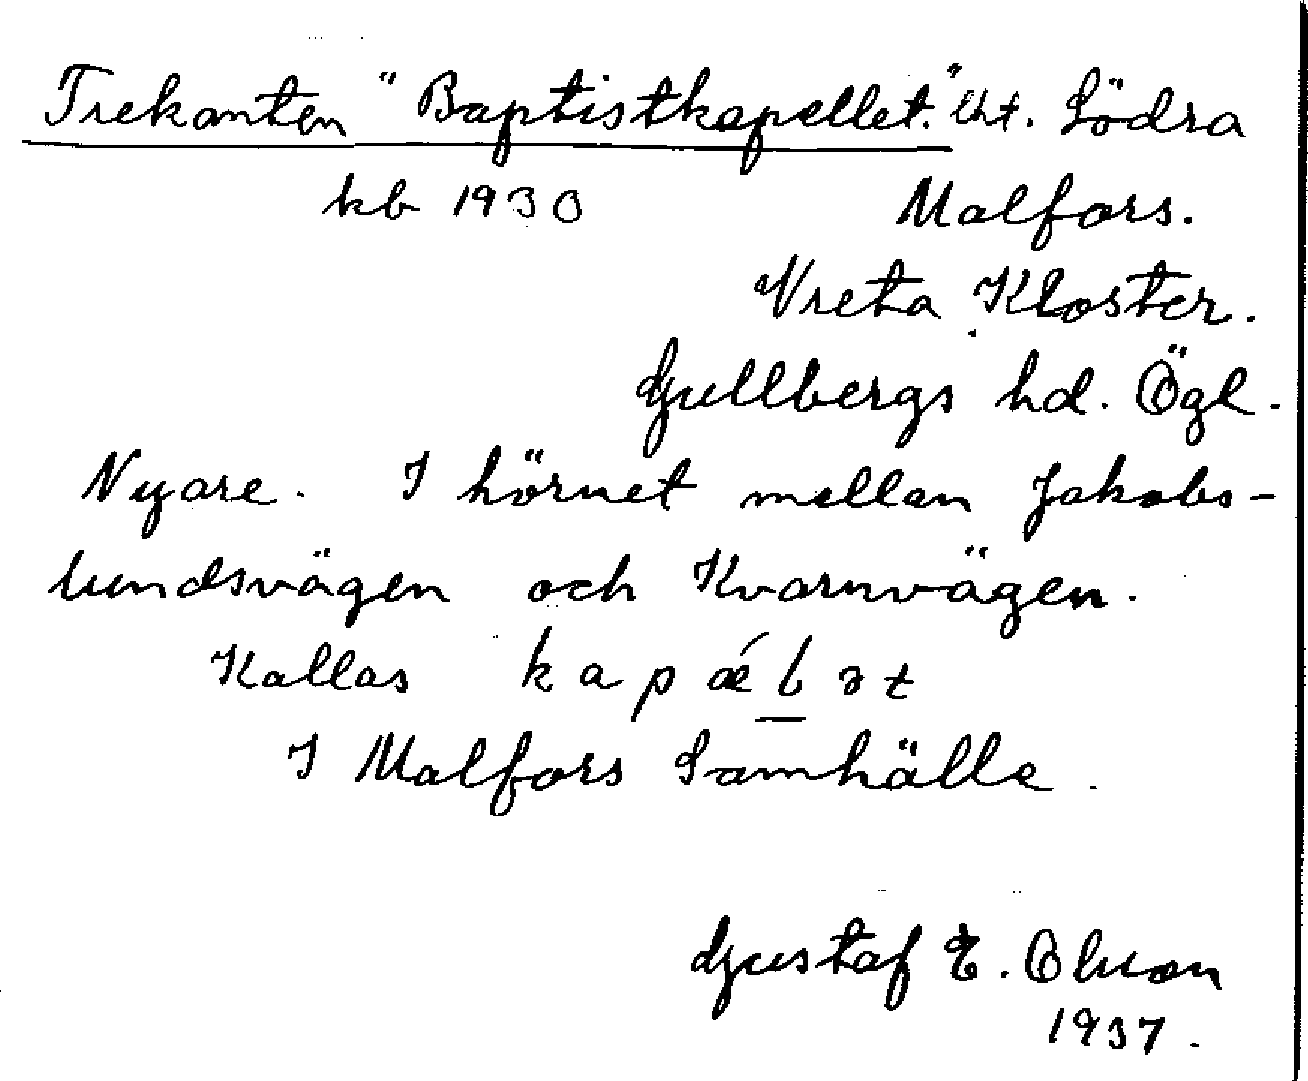 Trekanten "Baptistkapellet." lht. Södra
kb 1930 Malfors.
Vreta Kloster.
Gullbergs hd. Ögl.
Nyare. I hörnet mellan Jakobs-
lundsvägen och Kvarnvägen.
Kallas kapǽlət
I Malfors Samhälle.
Gustaf E. Olsson
1937.